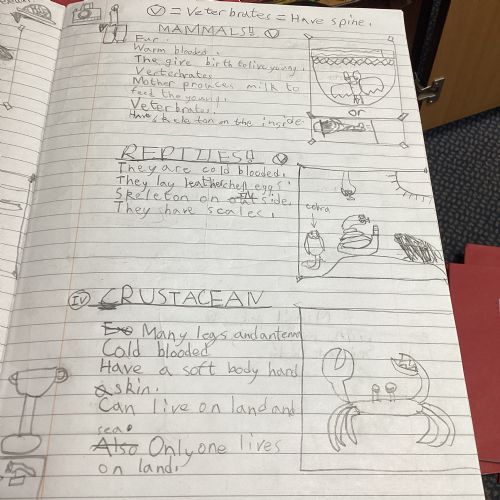 Ⓥ = Veterbrates = Have spine.
MAMMALS!! Ⓥ
Fur.
Warm blooded.
The give birth to live young.
Vertebrates
Mother prouces milk to
feed the young.
Veterbrates.
Have skeleton on the inside.
or
REPTILES!! Ⓥ
They are cold blooded.
They lay leathershell eggs
Skeleton on side.
They shave scales.
cobra
IV CRUSTACEAN
Many legs and antenna
Cold blooded
Have a soft body hard
skin.
Can live on land and
sea.
Also Only one lives
on land.